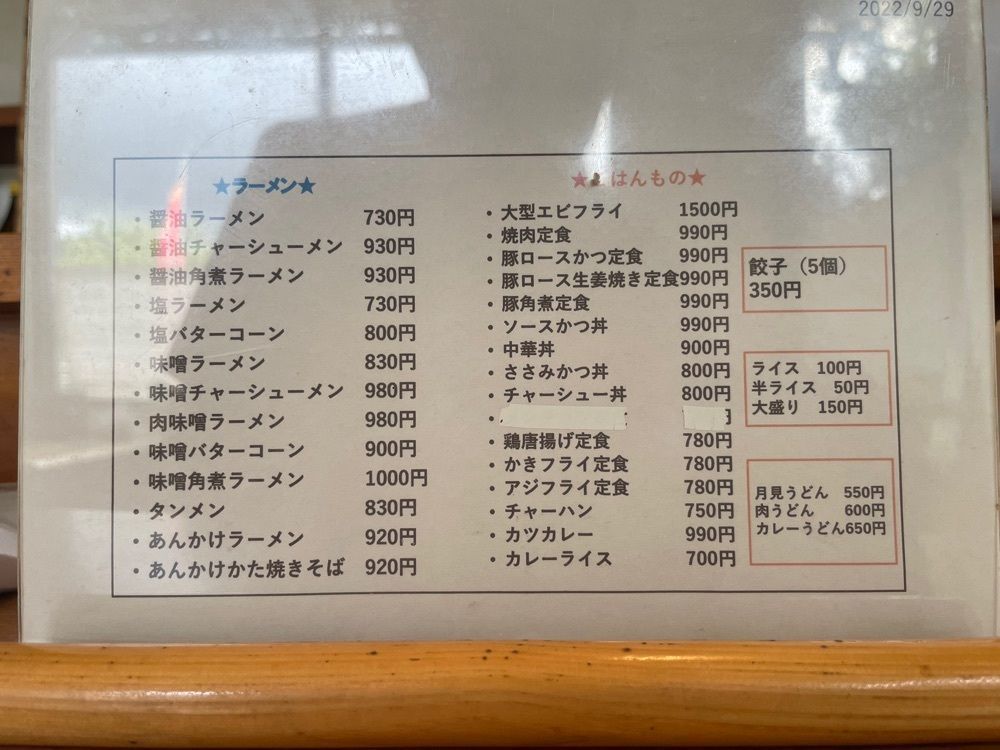 2022/9/29
★ラーメン★
・醤油ラーメン 730円
・醤油チャーシューメン 930円
・醤油角煮ラーメン 930円
・塩ラーメン 730円
・塩バターコーン 800円
・味噌ラーメン 830円
・味噌チャーシューメン 980円
・肉味噌ラーメン 980円
・味噌バターコーン 900円
・味噌角煮ラーメン 1000円
・タンメン 830円
・あんかけラーメン 920円
・あんかけかた焼きそば 920円
★はんもの★
・大型エビフライ 1500円
・焼肉定食 990円
・豚ロースかつ定食 990円
・豚ロース生姜焼き定食990円
・豚角煮定食 990円
・ソースかつ丼 990円
・中華丼 900円
・ささみかつ丼 800円
・チャーシュー丼 800円
・ 円
・鶏唐揚げ定食 780円
・かきフライ定食 780円
・アジフライ定食 780円
・チャーハン 750円
・カツカレー 990円
・カレーライス 700円
餃子（5個）
350円
ライス 100円
半ライス 50円
大盛り 150円
月見うどん 550円
肉うどん 600円
カレーうどん650円